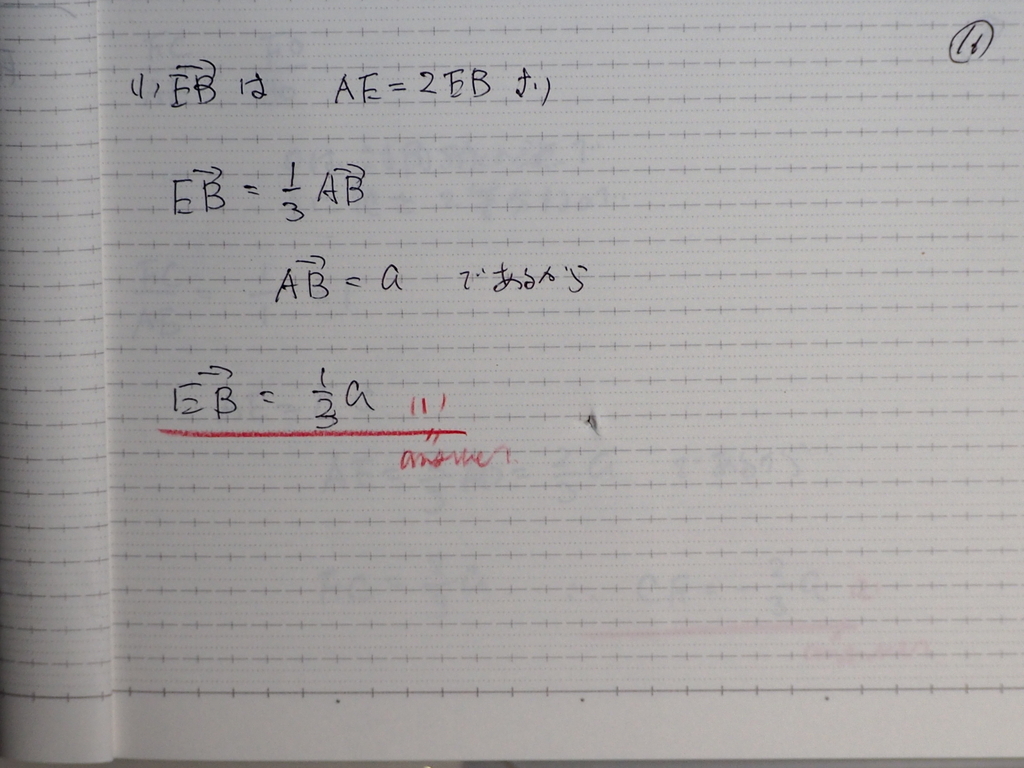 (1) EB は AE = 2EB より
EB = 1/3 AB
AB = a であるから
EB = 1/3 a (1)
answer.